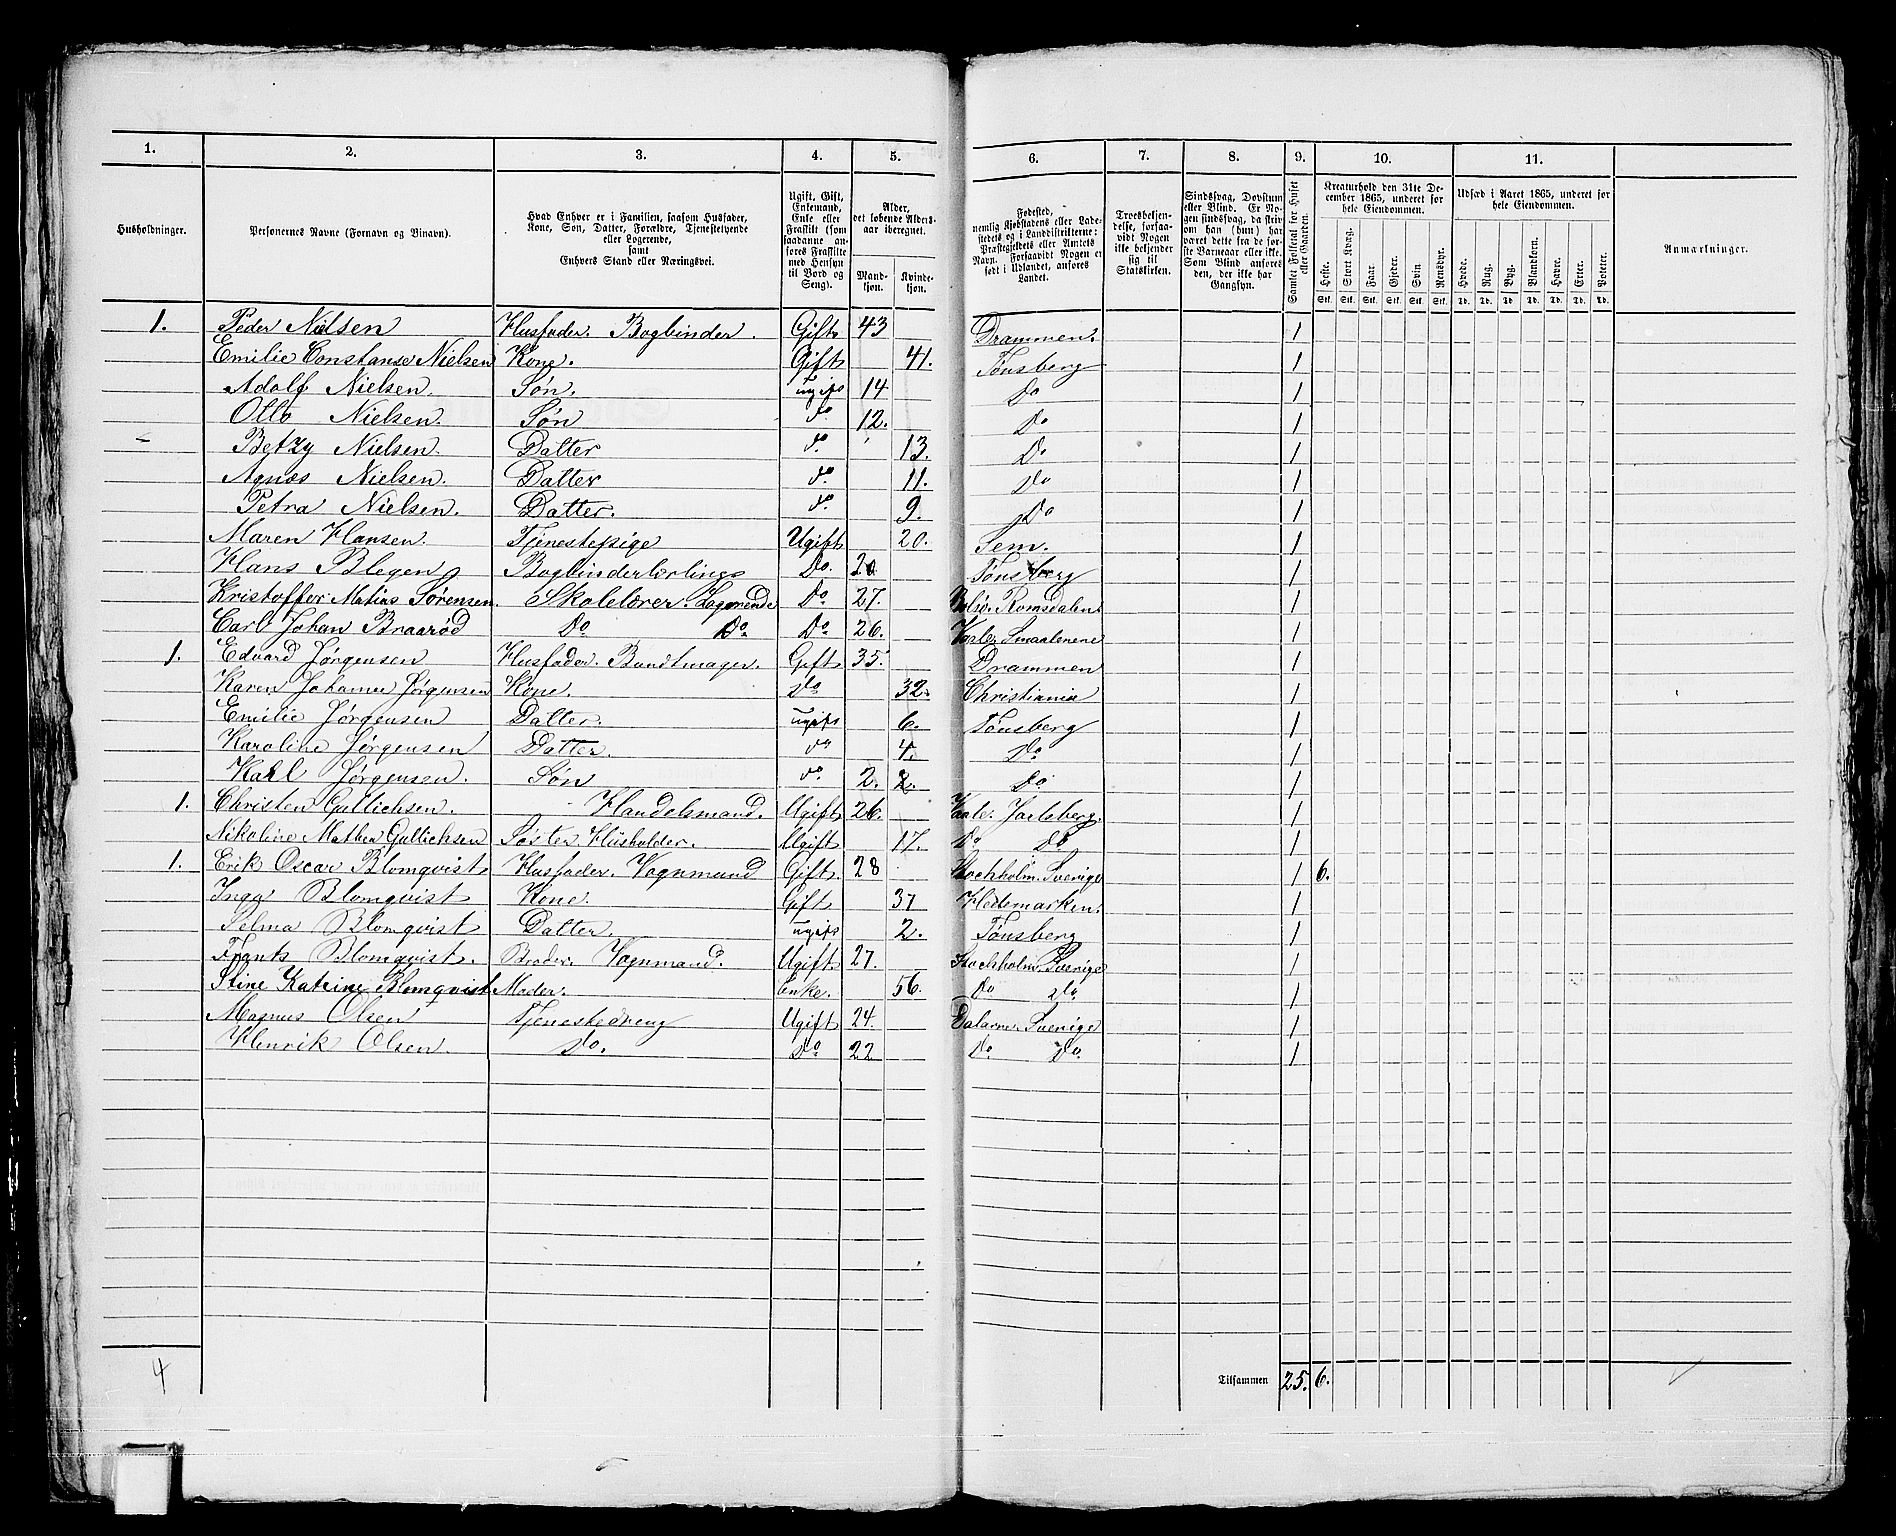 1. 2. 3. 4. 5. 6. 7. 8. 9. 10. 11.
Husholdninger. Personernes Navne (Fornavn og Tilnavn). Hvad Enhver er i Familien, saasom Husfader, Kone, Søn, Datter, Forældre, Tjenestetyende eller Logerende, samt Enhvers Stand eller Næringsvei. Ugift, Gift, Enkemand, Enke eller Fraskilt (som saadanne anføres Fraskilte med Hensyn til Bord og Seng). Alder, det løbende Alders-aar iberegnet. Mand-kjøn. Kvinde-kjøn. Fødested, nemlig Kjøbstadens eller Ladestedets og i Landdistrikterne: Præstegjeldets eller Amtets Navn. Forsaavidt Nogen er født i Udlandet, anføres Landet. Troesbekjendelse, forsaavidt Nogen ikke bekjender sig til Statskirken. Sindssvag, Døvstum eller Blind. Er Nogen sindssvag, da skriv om han (hun) har været dette fra de første Barneaar eller ikke. Som Blind anføres den, der ikke har Gangsyn. Samlet Folketal for Huset eller Gaarden. Kreaturhold den 31te December 1865, underet for hele Eiendommen. Udsæd i Aaret 1865, underet for hele Eiendommen. Anmærkninger.
Heste. Stort Kvæg. Faar. Gjeder. Svin. Rensdyr. Hvede. Rug. Byg. Blandkorn. Havre. Erter. Poteter.
Stk. Stk. Stk. Stk. Stk. Stk. Td. Td. Td. Td. Td. Td. Td.
1. Peder Nielsen Husfader. Bogbinder. Gift 43 Drammen. 1
Emilie Constanse Nielsen Kone. Gift 41. Tønsberg 1
Adolf Nielsen. Søn. ugift 14 Do 1
Otto Nielsen. Søn do 12. Do 1
Betzy Nielsen. Datter do. 13. Do 1
Agnes Nielsen. Datter do. 11. Do 1
Petra Nielsen. Datter. do 9. Do 1
Maren Hansen. Tjenestepige Ugift 20. Sem. 1
Hans Blegen Bogbinderlærlings Do. 20 Tønsberg 1
Kristoffer Matias Sørensen. Skolelærer. Logerende Do 27. Bolsø. Romsdalen 1
Carl Johan Braarød Do Do Do 26. Vaaler Smaalenene 1
1. Edvard Jørgensen Husfader. Buntmager. Gift 35. Drammen 1
Karen Johanne Jørgensen Kone. Do 32. Christiania 1
Emilie Jørgensen Datter. ugift 6. Tønsberg 1
Karoline Jørgensen Datter. do 4. Do 1
Karl Jørgensen. Søn do. 2. 2. Do 1
1. Christen Gullichsen. Handelsmand. Ugift 26. Vaale. Jarlsberg. 1
Nikoline Mathea Gullichsen Søster Husholder. Ugift 17. Do Do 1
1. Erik Oscar Blomqvist Husfader. Vognmand Gift. 28 Stochholm. Sverige 1 6.
Inga Blomqvist Kone. Gift 37 Hedemarken. 1
Selma Blomqvist Datter. ugift 2. Tønsberg 1
Frants Blomqvist. Broder. Vognmand. Ugift 27. Stochholm. Sverige 1
Stine Katrine Blomqvist Moder. Enke. 56. Do Do 1
Magnus Olsen Tjenestedreng Ugift 24. Dalarne. Sverige 1
Henrik Olsen. Do. Do 22 Do Do 1
4 Tilsammen 25. 6.